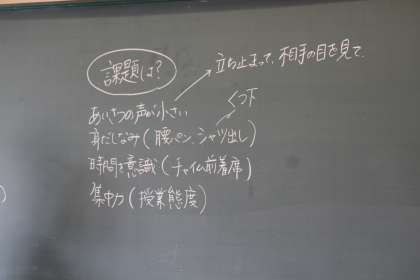 課題は?
立ち止まって、相手の目を見て、
あいさつの声が小さい
くつ下
身だしなみ(腰パン、シャツ出し)
時間を意識(チャイム前着席)
集中力(授業態度)
)